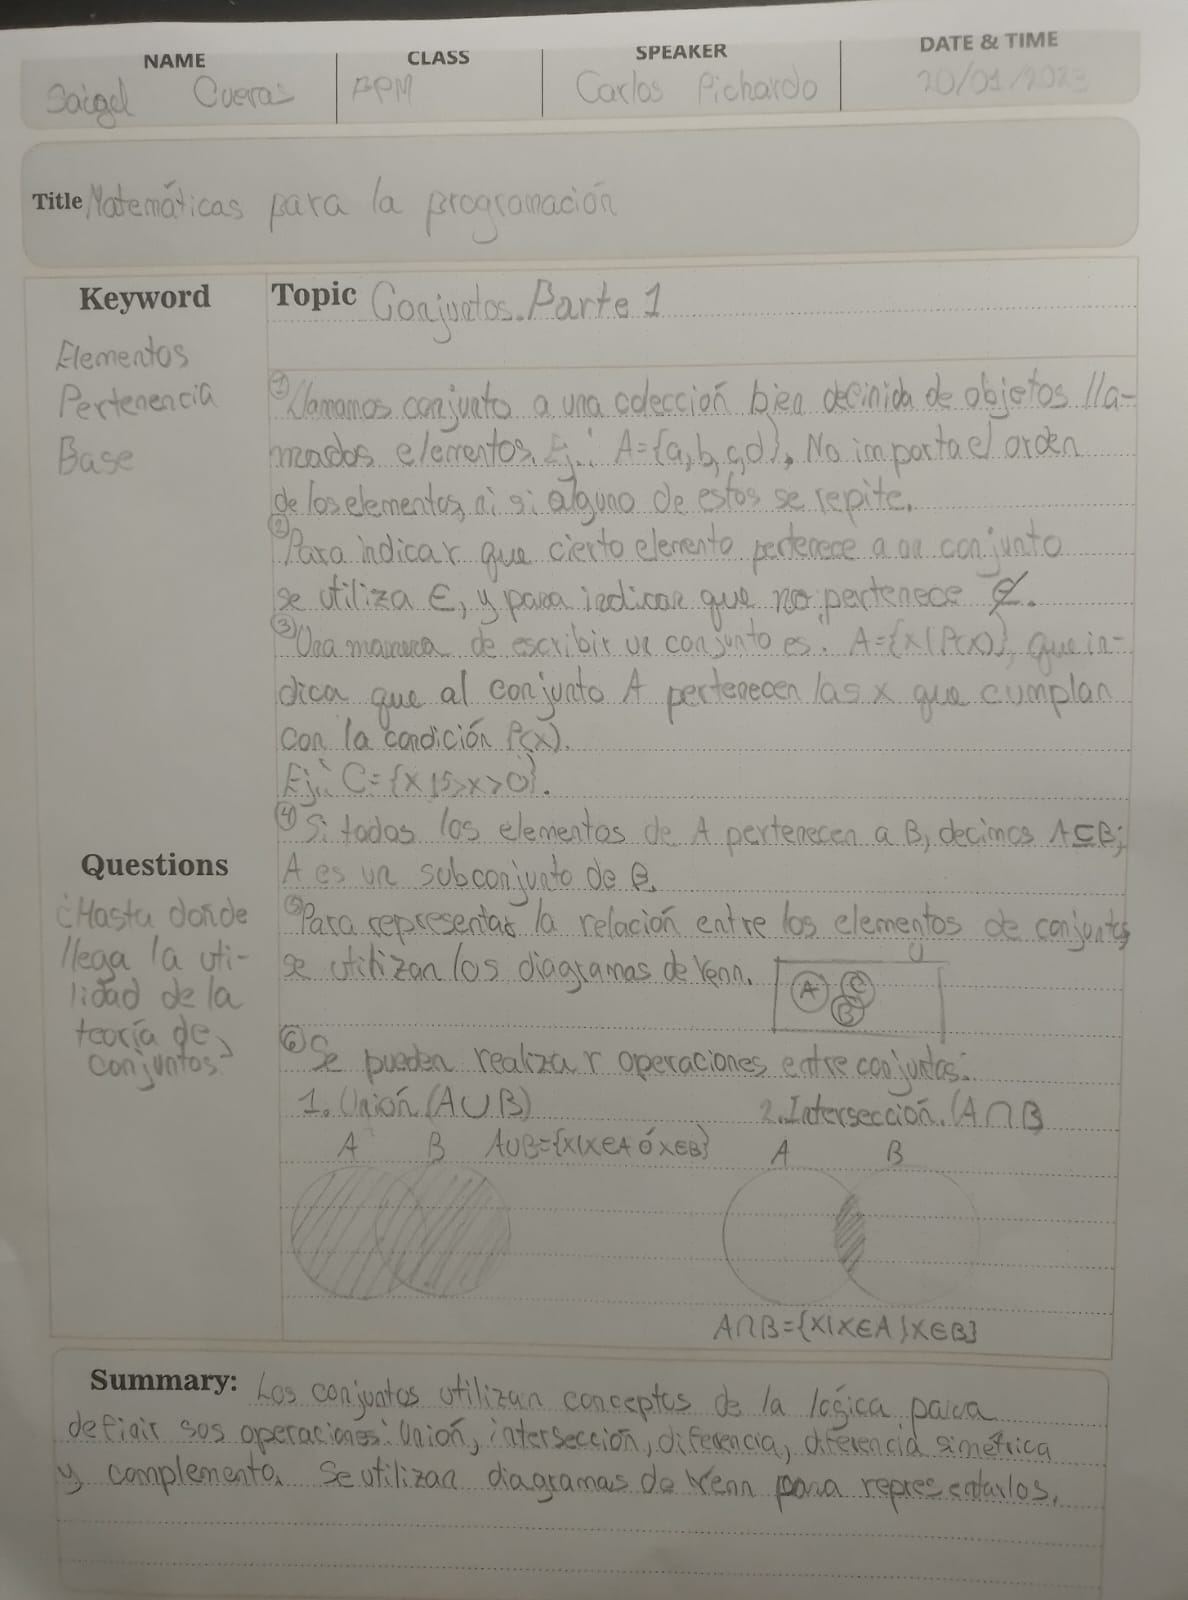 NAME CLASS SPEAKER DATE & TIME
Saigel Cuevas PPM Carlos Pichardo 20/01/2023
Title Matemáticas para la programación
Keyword
Elementos
Pertenencia
Base
Topic Conjuntos. Parte 1
① Llamamos conjunto a una colección bien definida de objetos lla-
mados elementos. Ej.: A={a,b,c,d}. No importa el orden
de los elementos, ni si alguno de estos se repite.
② Para indicar que cierto elemento pertenece a un conjunto
se utiliza ∈, y para indicar que no pertenece ∉.
③ Una manera de escribir un conjunto es: A={x|P(x)}, que in-
dica que al conjunto A pertenecen las x que cumplan
con la condición P(x).
Ej.: C={x|5>x>0}.
④ Si todos los elementos de A pertenecen a B, decimos A⊆B;
A es un subconjunto de B.
Questions
¿Hasta donde
llega la uti-
lidad de la
teoría de
conjuntos?
⑤ Para representar la relación entre los elementos de conjuntos
se utilizan los diagramas de Venn.
U
A C
B
⑥ Se pueden realizar operaciones entre conjuntos:
1. Unión (A∪B) 2. Intersección. (A∩B
A B A∪B={x|x∈A ó x∈B} A B
A∩B={x|x∈A y x∈B}
Summary: Los conjuntos utilizan conceptos de la lógica para
definir sus operaciones: Unión, intersección, diferencia, diferencia simétrica
y complemento. Se utilizan diagramas de Venn para representarlos.